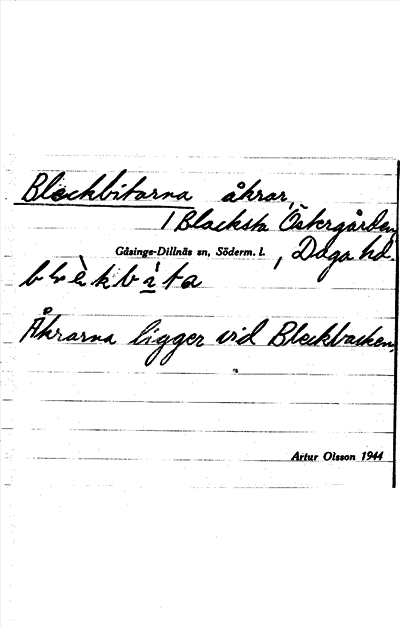 Bleckbitarna åkrar,
1 Blacksta Östergården,
Gåsinge-Dillnäs sn, Söderm. l. , Daga hd.
blèkbı̀ta
Åkrarna ligger vid Bleckbacken.
Artur Olsson 1944